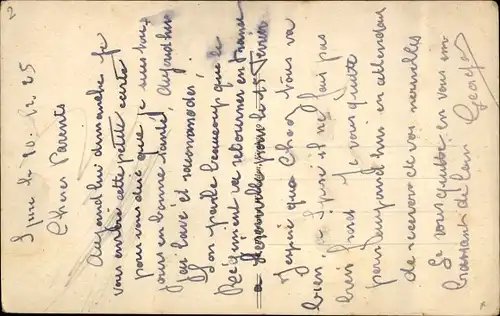 le 20. 12. 25
Chers Parents
Aujourd'hui dimanche je
vous envoie cette petite carte
pour vous dire que je suis tou
jours en bonne santé, Aujourd'hui
j'ai lavé et raccommoder,
L'on parle beaucoup que le
Régiment va retourner en France
a pour le 15 Février
J'espère que Chez Vous va
bien, Ici il ne fait pas
bien froid Je vous quitte
pour aujourd'hui en attendant
de recevoir de vos nouvelles
Je vous quitte en vous em
brassant de loin Georges